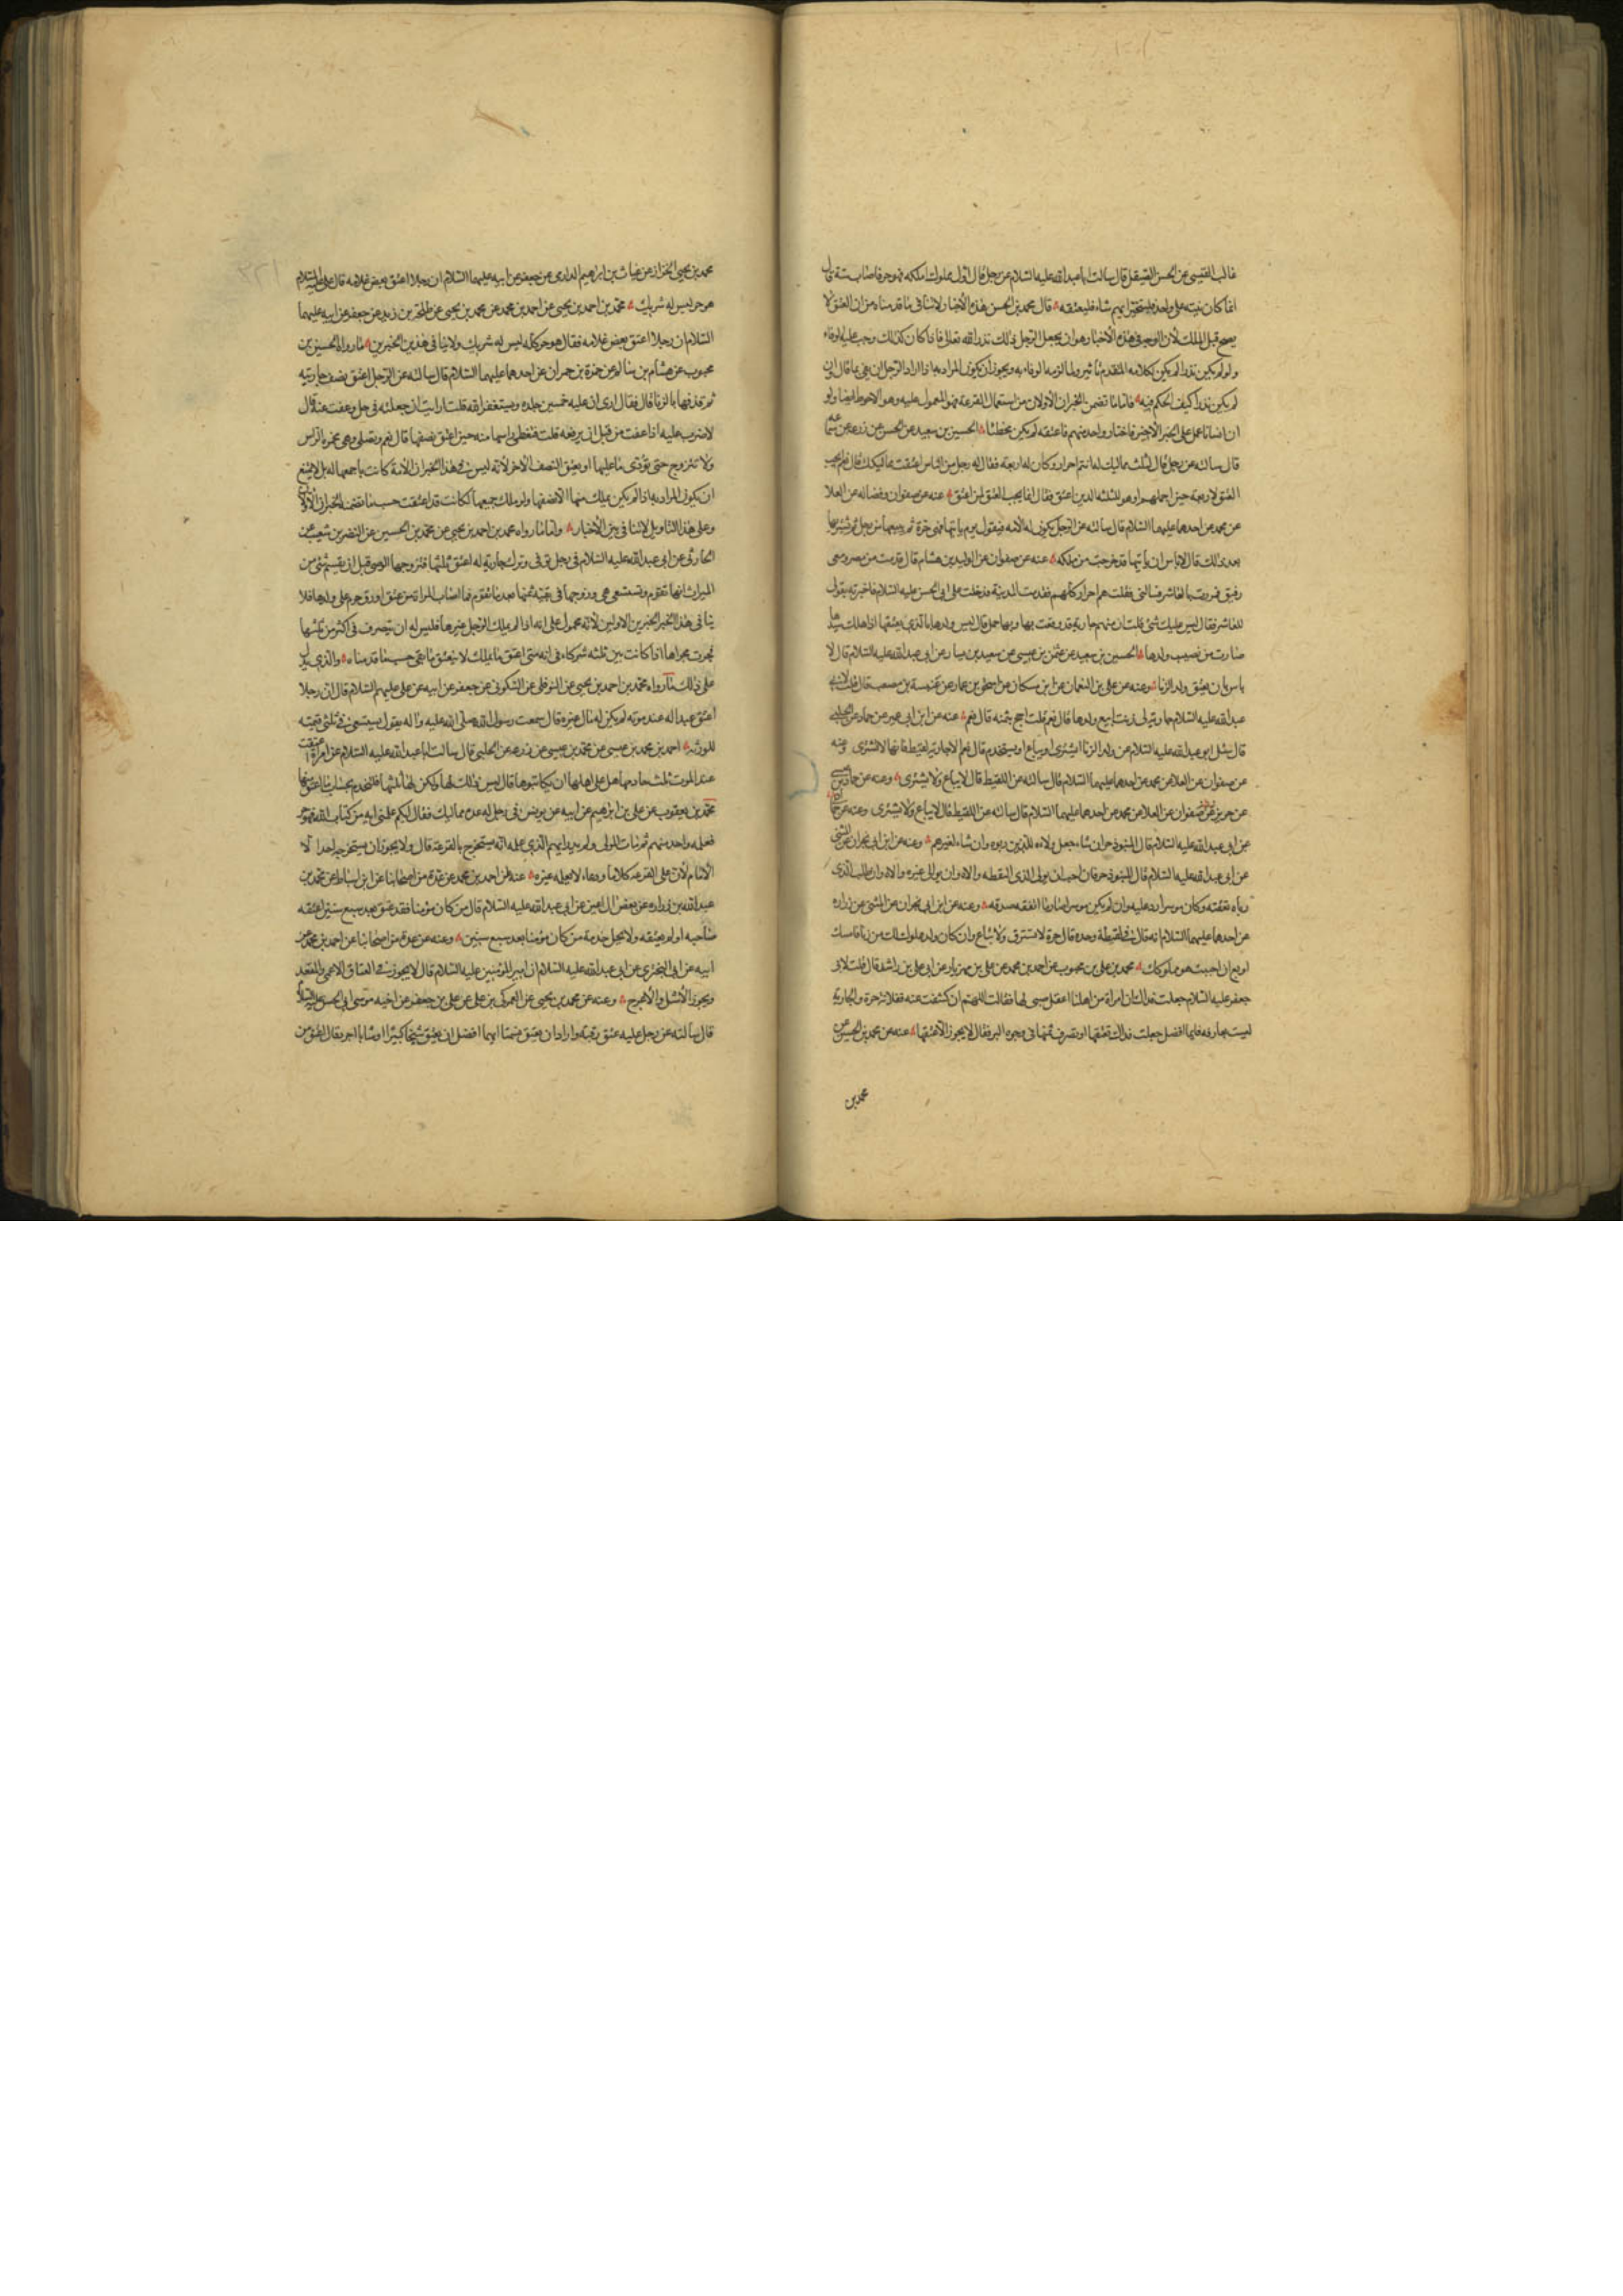 غالب القيسى عن الحسن الصيقل قال سالت ابا عبد الله عليه السلام عن رجل قال اول مملوك املكه فهو حر فاصاب ستة قال
انما كان نيته على واحد فليتخير ايهم شاء فليعتقه قال محمد بن الحسن هذه الأخبار لا تنافى ما قدمناه من ان العتق لا
يصح قبل الملك لأن الوجه فى هذه الأخبار هو ان يجعل الرجل ذلك نذرا لله تعالى فاذا كان كذلك وجب عليه الوفاء
لم يكن نذرا كيف الحكم فيه فاما ما تضمن الخبران الأولان من استعمال القرعة فهو المعمول عليه وهو الاحوط ايضا ولو
ان انسانا عمل على الخبر الأخير فاختار واحد منهم فاعتقه لم يكن مخطئا الحسين بن سعيد عن الحسن عن زرعة عن سماعة
قال سالته عن رجل قال لثلث مماليك له انتم احرار وكان له اربعة فقال له رجل من الناس اعتقت مماليكك قال نعم يجب
العتق لاربعة حين اجملهم او هو للثلثة الذين اعتق فقال انما يجب العتق لمن اعتق عنه عن صفوان وفضالة عن العلا
عن محمد عن احدهما عليهما السلام قال سالته عن الرجل يكون له الأمة فيقول يوم ياتيها فهى حرة ثم يبيعها من رجل ثم يشتريها
بعد ذلك قال لا باس ان ياتيها قد خرجت من ملكه عنه عن صفوان عن الوليد بن هشام قال قدمت من مصر ومعى
رقيق فمررت بالعاشر فسالنى فقلت هم احرار كلهم فقدمت المدينة فدخلت على ابى الحسن عليه السلام فاخبرته بقولى
للعاشر فقال ليس عليك شئ قلت ان فيهم جارية قد وقعت بها وبها حمل قال ليس ولدها بالذى يعتقها اذا هلك سيدها
صارت من نصيب ولدها الحسين بن سعيد عن عثمن بن عيسى عن سعيد بن يسار عن ابى عبد الله عليه السلام قال لا
باس بان يعتق ولد الزنا وعنه عن على بن النعمان عن ابن مسكان عن اسحق بن عمار عن عنبسة بن مصعب قال قلت لابى
عبد الله عليه السلام جارية لى زنت ابيع ولدها قال نعم قلت احج بثمنه قال نعم عنه عن ابن ابى عمير عن حماد عن الحلبى
قال سئل ابو عبد الله عليه السلام عن ولد الزنا ايشترى او يباع او يستخدم قال نعم الا جارية لقيطة فانها لا تشترى وعنه
عن صفوان عن العلا عن محمد عن احدهما عليهما السلام قال سالته عن اللقيط قال لا يباع ولا يشترى وعنه عن حماد بن عيسى
عن حريز عن صفوان عن العلا عن محمد عن احدهما عليهما السلام قال سالته عن اللقيط قال لا يباع ولا يشترى وعنه عن حماد
عن ابى عبد الله عليه السلام قال المنبوذ حر ان شاء جعل ولائه للذين ربوه وان شاء لغيرهم وعنه عن ابن ابى نجران عن المثنى
عن ابى عبد الله عليه السلام قال المنبوذ حر فان احب ان يوالى الذى التقطه والا فان طلب الذى
رباه نفقته وكان موسرا رد عليه وان لم يكن موسرا صار ما انفقه صدقه وعنه عن ابن ابى نجران عن المثنى عن زراره
عن احدهما عليهما السلام انه قال فى لقيطة وجدت قال حرة لا تسترق ولا تباع وان كان ولد مملوك لك من زنا فامسك
او بع ان احببت هو مملوكك محمد بن على بن محبوب عن احمد بن محمد عن على بن مهزيار عن ابى على بن راشد قال قلت لابى
جعفر عليه السلام جعلت فداك ان امراة من اهلنا اعتل صبى لها فقالت اللهم ان كشفت عنه ففلانة حرة والجارية
ليست بعارفه فايما افضل جعلت فداك تعتقها او تصرف ثمنها فى وجوه البر فقال لا يجوز الا عتقها عنه عن محمد بن الحسين عن
محمد بن
محمد بن يحيى الخزاز عن غياث بن ابراهيم الدارى عن جعفر عن ابيه عليهما السلام ان رجلا اعتق بعض غلامه قال على عليه السلام
هو حر ليس له شريك محمد بن احمد بن يحيى عن احمد بن محمد عن محمد بن يحيى عن طلحة بن زيد عن جعفر عن ابيه عليهما
السلام ان رجلا اعتق بعض غلامه فقال هو حر كله ليس له شريك ولا ينافى هذين الخبرين ما رواه الحسين بن
محبوب عن هشام بن سالم عن حمزة بن حمران عن احدهما عليهما السلام قال سالته عن الرجل اعتق نصف جاريته
ثم قذفها بالزنا قال فقال ارى ان عليه خمسين جلدة ويستغفر الله قلت ارايت ان جعلته فى حل وعفت عنه قال
لا ضرب عليه اذا عفت من قبل ان يرفعه قلت فتغطى راسها منه حين اعتق نصفها قال نعم وتصلى وهى مخمرة الراس
ولا تتزوج حتى تؤدى ما عليها او يعتق النصف الآخر لأنه ليس فى هذا الخبر ان الأمة كانت باجمعها له بل لا يمتنع
ان يكون المراد به اذا لم يكن يملك منها الا نصفها ولو ملك جميعها لكانت قد اعتقت حسب ما تضمنه الخبران الأولان
وعلى هذا التاويل لا تنافى بين الأخبار واما ما رواه محمد بن احمد بن يحيى عن محمد بن الحسين عن النضر بن شعيب عن
الحارثى عن ابى عبد الله عليه السلام فى رجل توفى وترك جارية له اعتق ثلثها فتزوجها الوصى قبل ان يقسم شئ من
الميراث انها تقوم وتستسعى هى وزوجها فى بقية ثمنها بعد ما تقوم فما اصاب المراة من عتق او رق جرى على ولدها فلا
ينافى هذا الخبر الخبرين الاولين لأنه محمول على انه اذا لم يملك الرجل غيرها فليس له ان يتصرف فى اكثر من ثلثها
فجرت مجراها اذا كانت بين ثلثه شركاء فى انه متى اعتق ما يملك لا ينعتق ما بقى حسب ما قدمناه والذى يدل
على ذلك ما رواه محمد بن احمد بن يحيى عن النوفلى عن السكونى عن جعفر عن ابيه عن على عليهم السلام قال ان رجلا
اعتق عبدا له عند موته لم يكن له مال غيره قال سمعت رسول الله صلى الله عليه واله يقول يستسعى فى ثلثى قيمته
للورثة احمد بن محمد بن عيسى عن محمد بن عيسى عن زرعه عن الحلبى قال سالت ابا عبد الله عليه السلام عن امراة اعتقت
عند الموت ثلث خادمها هل على اهلها ان يكاتبوها قال ليس ذلك لها ولكن لها ثلثها فلتخدم بحساب ما اعتق منها
محمد بن يعقوب عن على بن ابرهيم عن ابيه عن يونس فى رجل له عدة مماليك فقال ايكم علمنى اية من كتاب الله فهو حر
فعلمه واحد منهم ثم مات المولى ولم يدر ايهم الذى علمه انه يستخرج بالقرعة قال ولا يجوز ان يستخرجه احد الا
الأمام لأن له على القرعة كلاما ودعاء لا يعلمه غيره عنه عن احمد بن محمد عن عدة من اصحابنا عن ابن اسباط عن محمد بن
عبد الله بن زراره عن بعض ال اعين عن ابى عبد الله عليه السلام قال من كان مؤمنا فقد عتق بعد سبع سنين اعتقه
صاحبه او لم يعتقه ولا يحل خدمة من كان مؤمنا بعد سبع سنين وعنه عن عدة من اصحابنا عن احمد بن محمد عن
ابيه عن ابى البخترى عن ابى عبد الله عليه السلام ان امير المؤمنين عليه السلام قال لا يجوز فى العتاق الاعمى والمقعد
ويجوز الأشل والأعرج وعنه عن محمد بن يحيى عن العمركى بن على عن على بن جعفر عن اخيه موسى ابى الحسن عليه السلام
قال سالته عن رجل عليه عتق رقبة واراد ان يعتق نسمة ايهما افضل ان يعتق شيخا كبيرا او شابا اجرد قال اعتق من